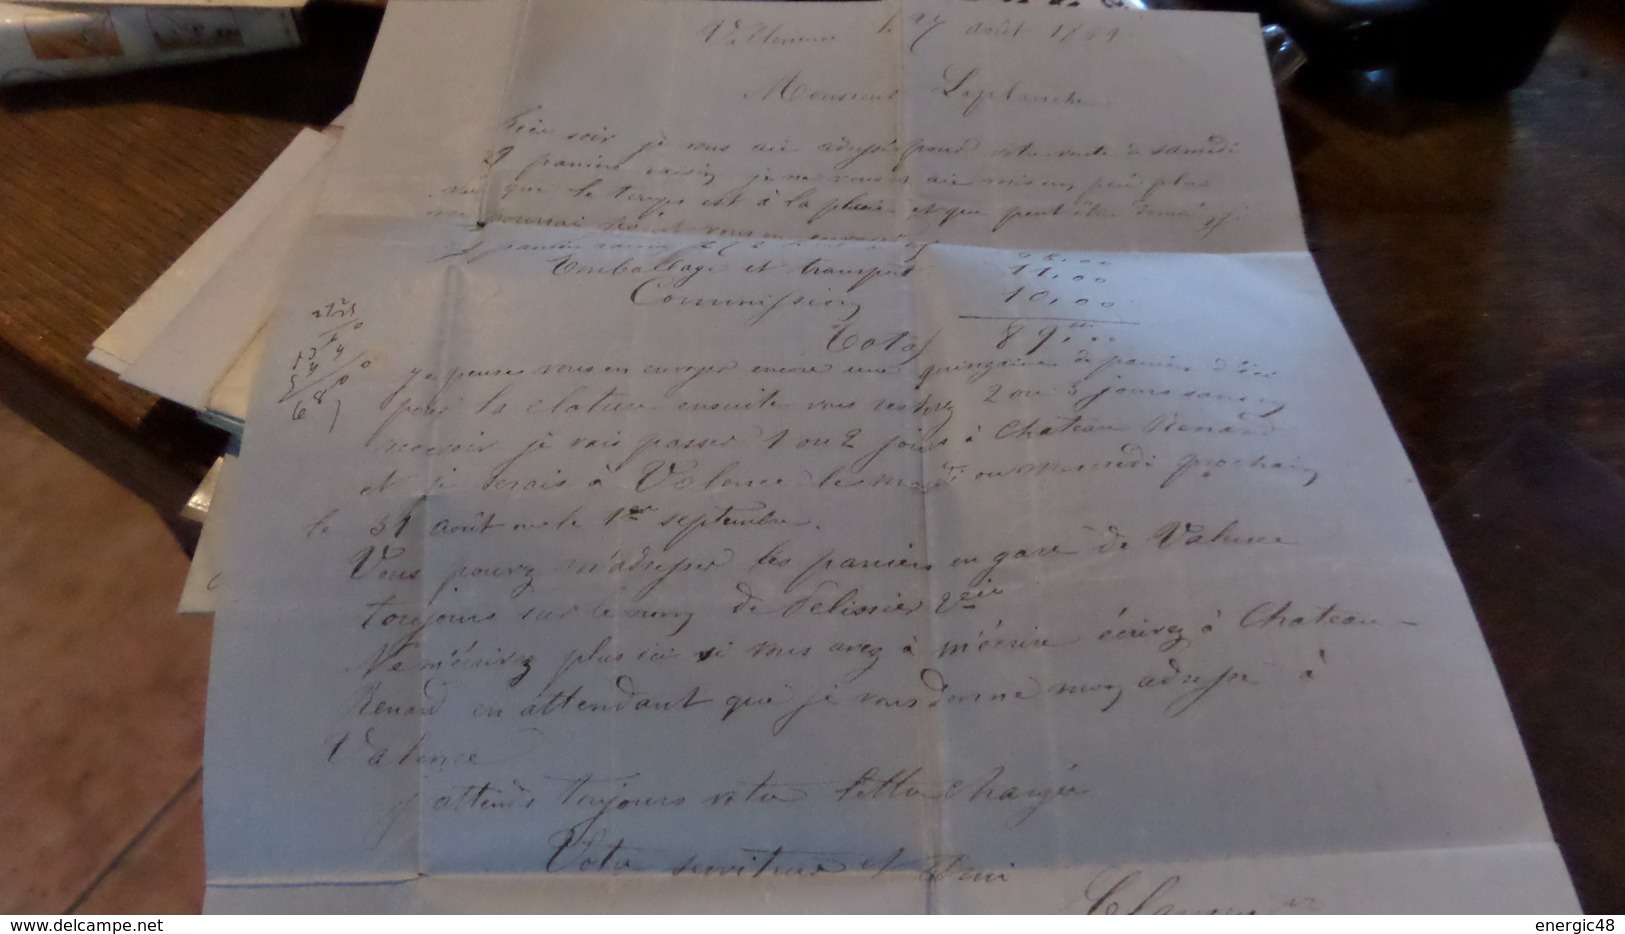 le 27 août 18
Monsieur Laplanche
hier soir je vous aie adressé pour votre vente de samedi
29 paniers raisin je ne vous en aie mis un peu plus
vu que le temps est à la pluie et que peut être demain je
ne pourrai vous en
paniers raisin
Emballage et transport 11,00
Commission 10,00
Total 89,00
Je penses vous en envoyer encore une quinzaine de paniers d'ici
pour la cloture ensuite vous resterez 2 ou 3 jours sans en
recevoir je vais passer 1 ou 2 jours à Chateau Renard
et je serais à Valence le mardi ou mercredi prochain
le 31 août ou le 1er septembre.
Vous pouvez m'adresser les paniers en gare de Valence
toujours sur le nom de Pelissier
Ne m'écrivez plus ici si vous avez à m'écrire écrivez à Chateau-
Renard en attendant que je vous donne mon adresse à
Valence
J'attends toujours votre lettre chargée
Votre serviteur et Ami
energic48